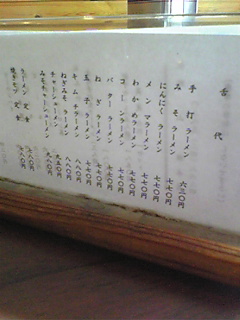 舌代
手打ラーメン 六三〇円
みそラーメン 七七〇円
にんにくラーメン 七七〇円
メンマラーメン 七七〇円
わかめラーメン 七七〇円
コーンラーメン 七七〇円
バターラーメン 七七〇円
ねぎラーメン 七七〇円
玉子ラーメン 七七〇円
キムチラーメン 八八〇円
ねぎみそラーメン 八八〇円
チャーシューメン 九五〇円
みそチャーシューメン
ラーメン定食
焼きモツ定食